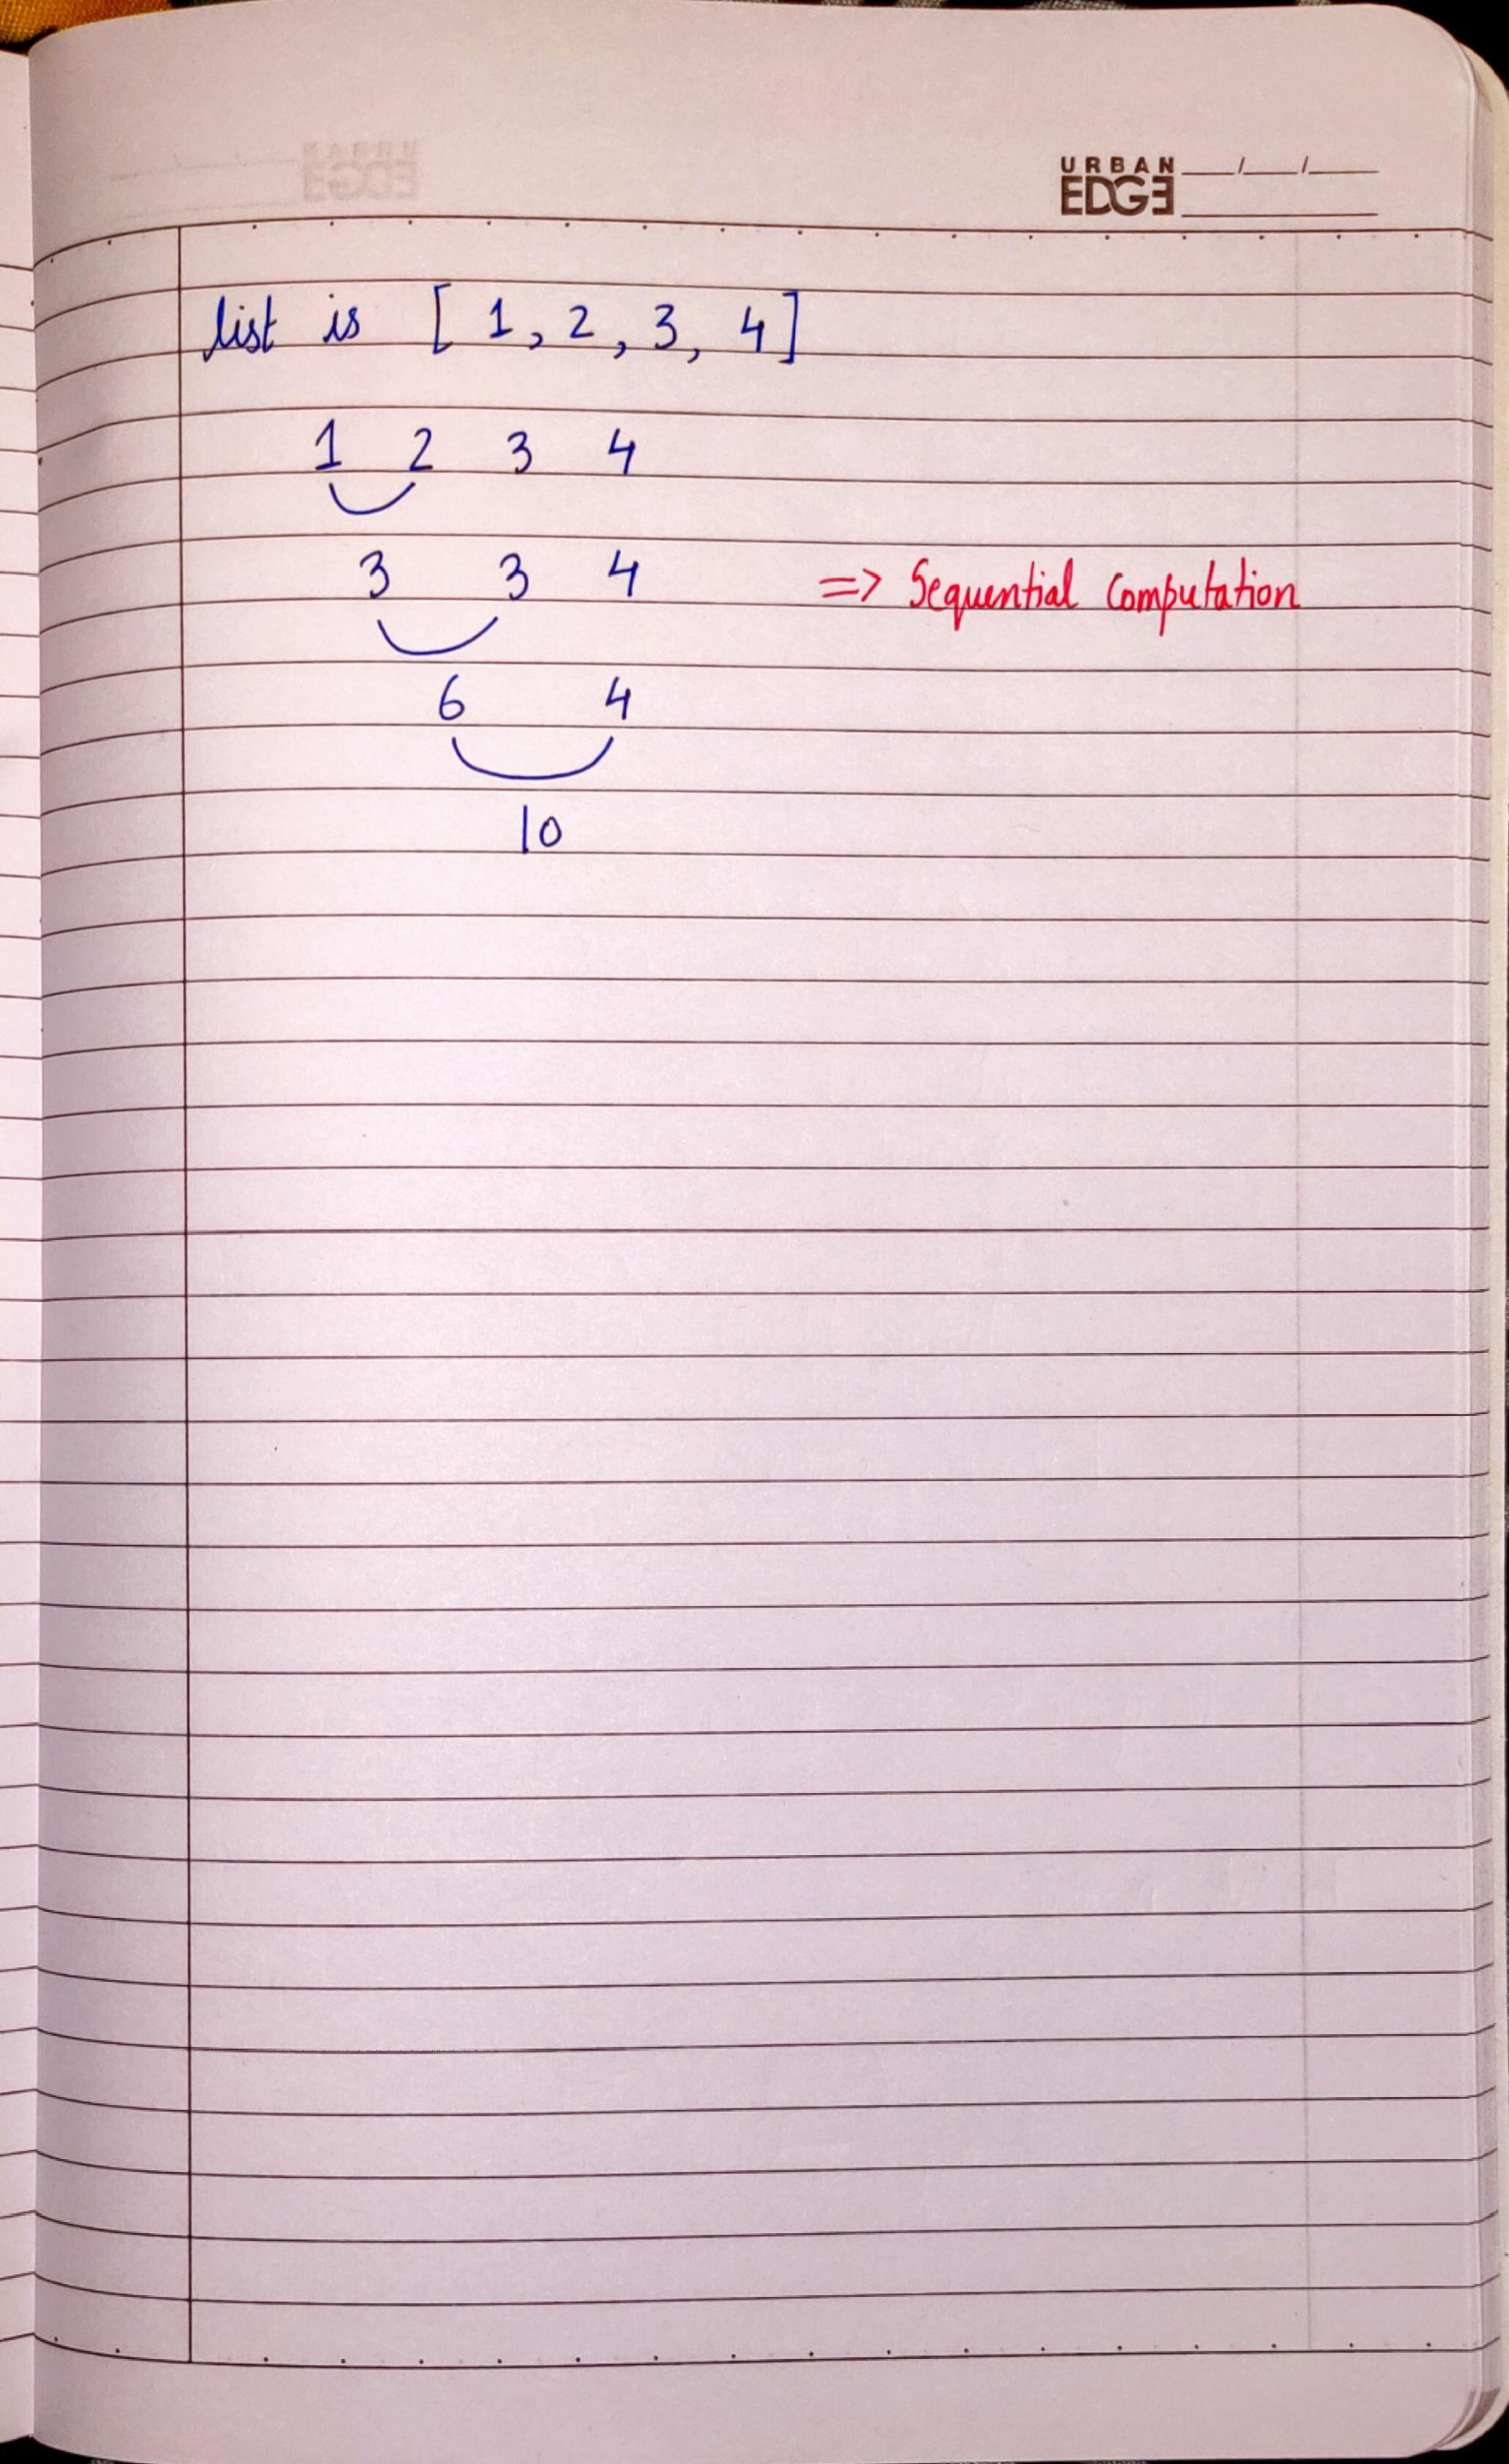 URBAN
EDGE
list is [ 1, 2, 3, 4]
1 2 3 4
3 3 4 => Sequential Computation
6 4
10